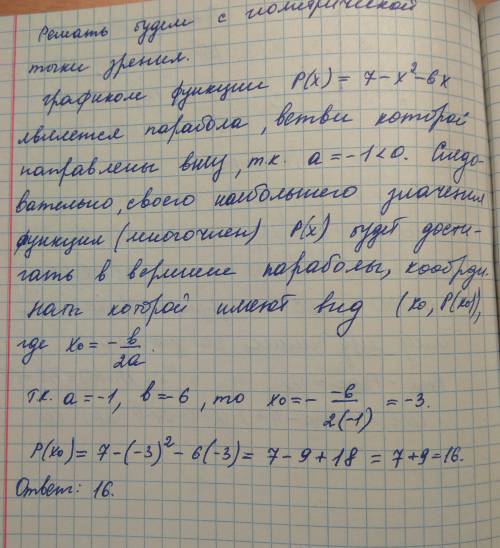 Решать будем с геометрической
точки зрения.
Графиком функции P(x) = 7 - x² - 6x
является парабола, ветви которой
направлены вниз, т.к. a = -1 < 0. Следо-
вательно, своего наибольшего значения
функция (многочлен) P(x) будет дости-
гать в вершине параболы, коорди-
наты которой имеют вид (x₀, P(x₀)),
где x₀ = - b/2a.
т.к. a = -1, b = -6, то x₀ = - -6/2(-1) = -3.
P(x₀) = 7 - (-3)² - 6(-3) = 7 - 9 + 18 = 7 + 9 = 16.
Ответ: 16.